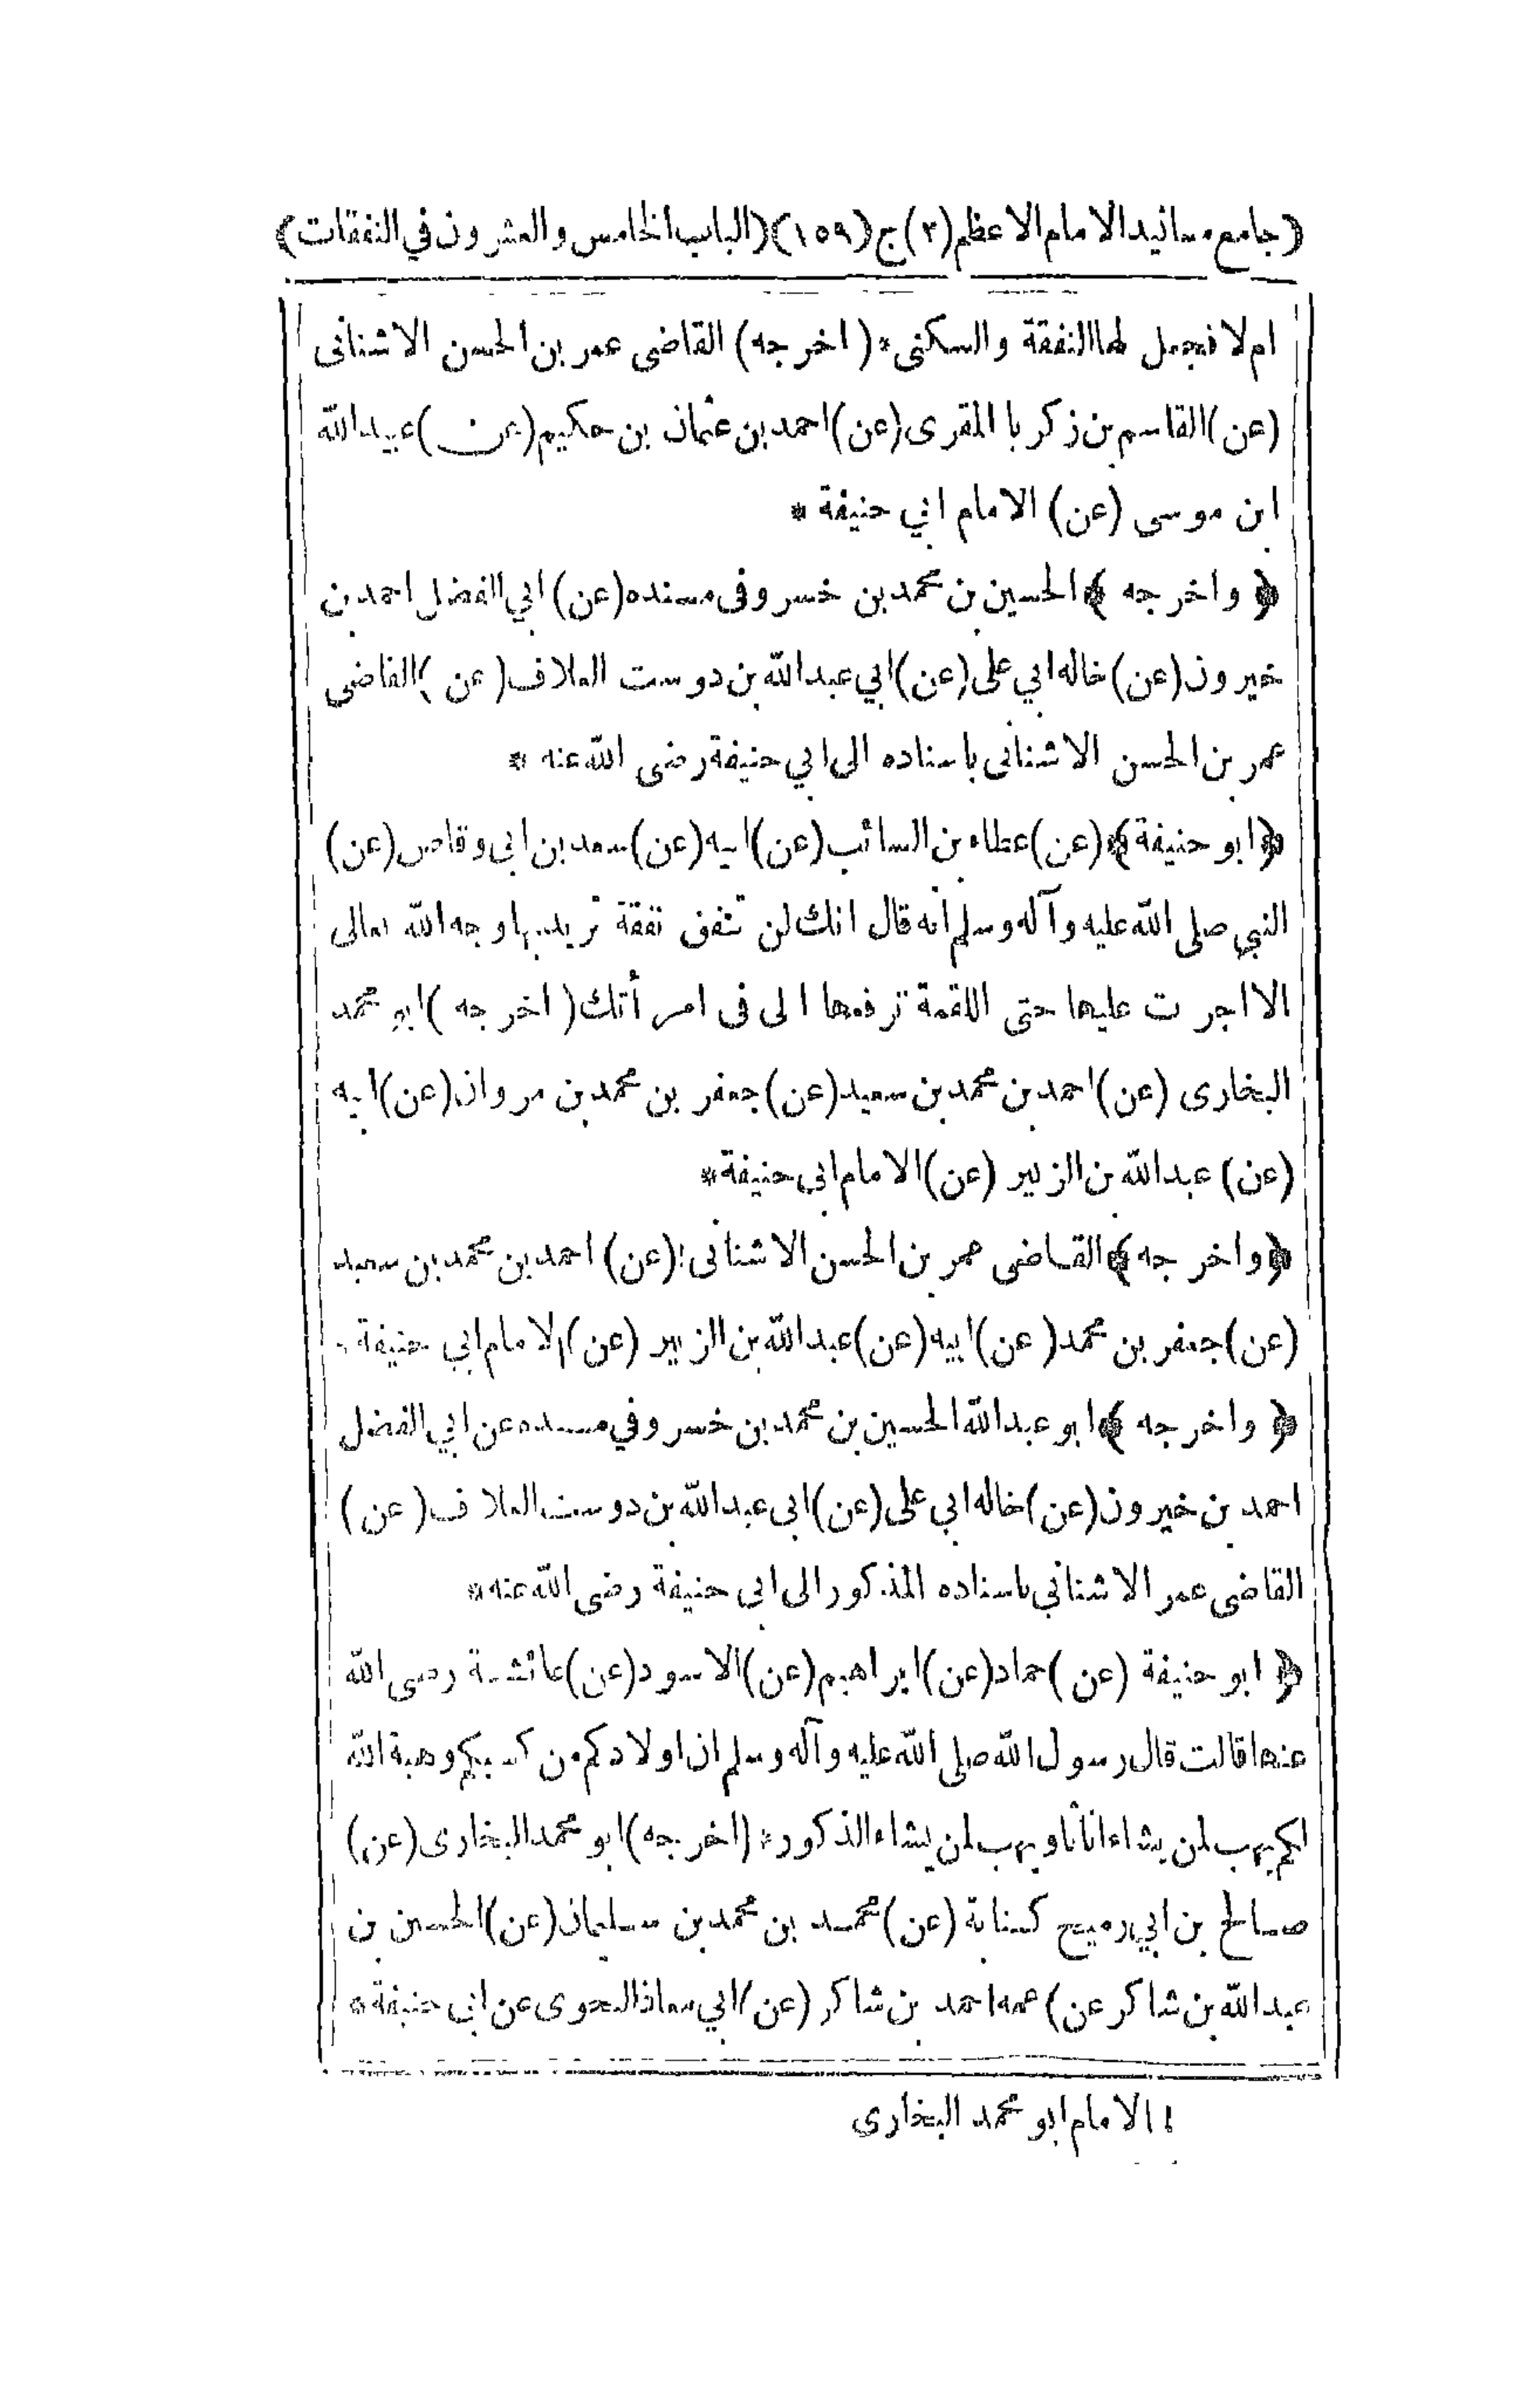 (جامع مسانيد الامام الاعظم (٢) ج (١٥٩) (الباب الخامس والعشرون في النفقات)
ام لا فنجعل لها النفقة والسكنى * (اخرجه) القاضى عمر بن الحسن الاشنانى
(عن) القاسم بن زكريا المقرى (عن) احمد بن عثمان بن حكيم (عن) عبيد الله
ابن موسى (عن) الامام ابي حنيفة *
﴿ واخرجه ﴾ الحسين بن محمد بن خسرو فى مسنده (عن) ابي الفضل احمد بن
خيرون (عن) خاله ابي على (عن) ابي عبد الله بن دوست العلاف (عن) القاضى
عمر بن الحسن الاشنانى باسناده الى ابي حنيفة رضى الله عنه *
﴿ ابو حنيفة ﴾ (عن) عطاء بن السائب (عن) ابيه (عن) سعد بن ابى وقاص (عن)
النبي صلى الله عليه وآله وسلم انه قال انك لن تنفق نفقة تريد بها وجه الله تعالى
الا اجرت عليها حتى اللقمة ترفعها الى فى امرأتك (اخرجه) ابو محمد
البخارى (عن) احمد بن محمد بن سعيد (عن) جعفر بن محمد بن مروان (عن) ابيه
(عن) عبد الله بن الزبير (عن) الامام ابى حنيفة *
﴿ واخرجه ﴾ القاضى عمر بن الحسن الاشنانى (عن) احمد بن محمد بن سعيد
(عن) جعفر بن محمد (عن) ابيه (عن) عبد الله بن الزبير (عن) الامام ابي حنيفة
﴿ واخرجه ﴾ ابو عبد الله الحسين بن محمد بن خسرو في مسنده عن ابي الفضل
احمد بن خيرون (عن) خاله ابي على (عن) ابى عبد الله بن دوست العلاف (عن)
القاضى عمر الاشناني باسناده المذكور الى ابى حنيفة رضى الله عنه *
﴿ ابو حنيفة (عن) حماد (عن) ابراهيم (عن) الاسود (عن) عائشة رضى الله
عنها قالت قال رسول الله صلى الله عليه وآله وسلم ان اولادكم من كسبكم وهبة الله
لكم يهب لمن يشاء اناثا ويهب لمن يشاء الذكور * (اخرجه) ابو محمد البخارى (عن)
صالح بن ابي رميح كتابة (عن) محمد بن محمد بن سليمان (عن) الحسين بن
عبد الله بن شاكر عن) عمه احمد بن شاكر (عن) ابي معاذ النحوى عن ابى حنيفة *
١ الامام ابو محمد البخارى